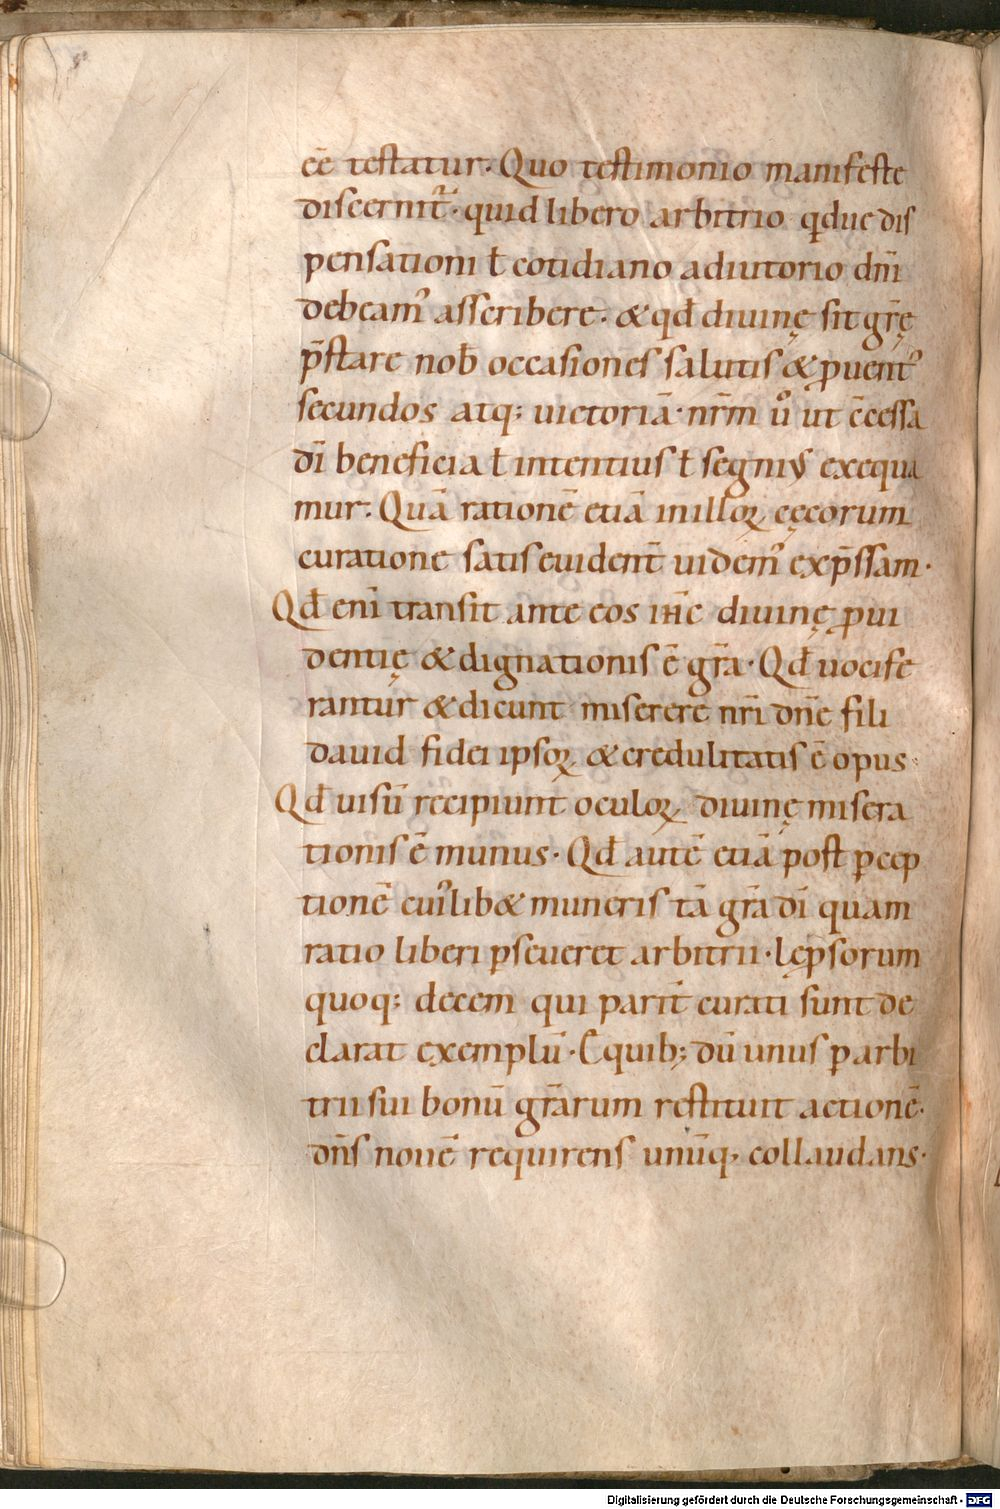 eē testatur. Quo testimonio manifeste
discernit᷑· quid libero arbitrio qͥdue dis
pensationi ƚ cotidiano adiutorio dn̄i
debeam᾽ asscribere· & qđ diuinę sit gr̄ę
p̄stare nob̄ occasiones salutis & ꝓuent᾽
secundos atq; uictoriā· nr̄m uͦ ut c̄cessa
dī beneficia ƚ intentius ƚ segni᾽ exequa
mur. Quā rationē etiā in illoꝝ cęcorum
curatione satis euident̄ uidem᾽ exp̄ssam·
Qđ enī transit ante eos ih̄c diuinę ꝓui
dentię & dignationis ē gr̄a· Qđ uocife
rantur & dicunt miserere nr̄i dn̄e fili
dauid fidei ipsoꝝ & credulitatis ē opus·
Qđ uisū recipiunt oculoꝝ diuinę misera
tionis ē munus· Qđ autē etiā post ꝑcep
tionē cui᾽lib& muneris tā gr̄a dī quam
ratio liberi ꝑseueret arbitrii· lęp̄sorum
quoq; decem qui parit̄ curati sunt de
clarat exemplū· E quib; dū unus ꝑ arbi
trii sui bonū gr̄arum restituit actionē·
dn̄s nouē requirens unūq; collaudans·
Digitalisierung gefördert durch die Deutsche Forschungsgemeinschaft - DFG